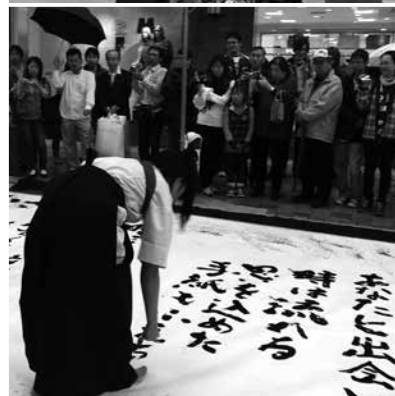 あなたに出会い
時は流れる
思いを込めた
手紙と…